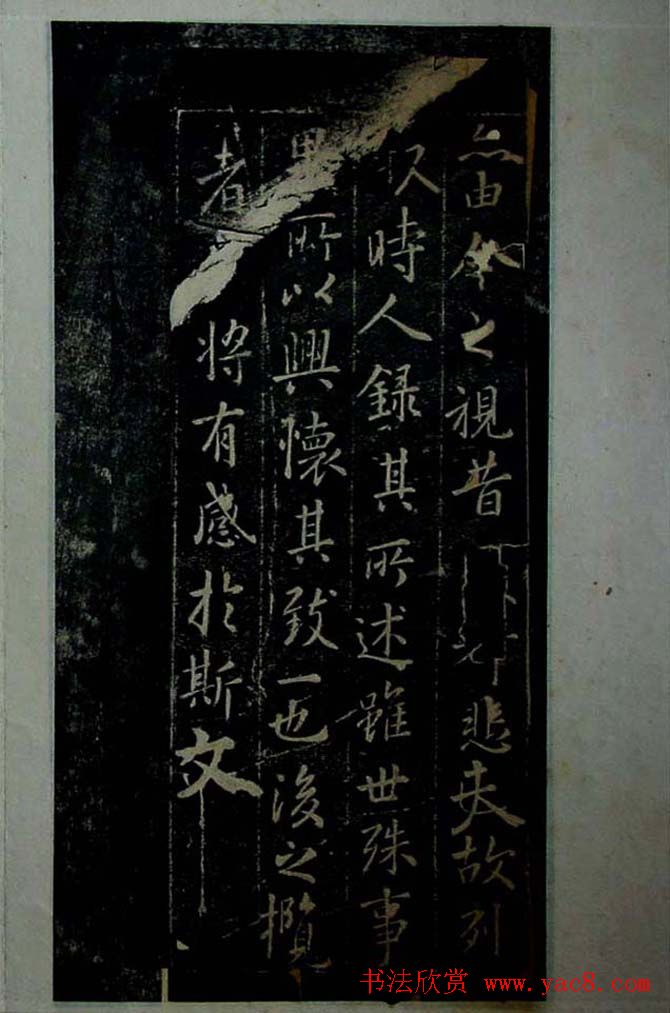 亦由今之視昔悲夫故列
叙時人錄其所述雖世殊事
異所以興懷其致一也後之攬
者將有感於斯文
书法欣赏 www.yac8.com